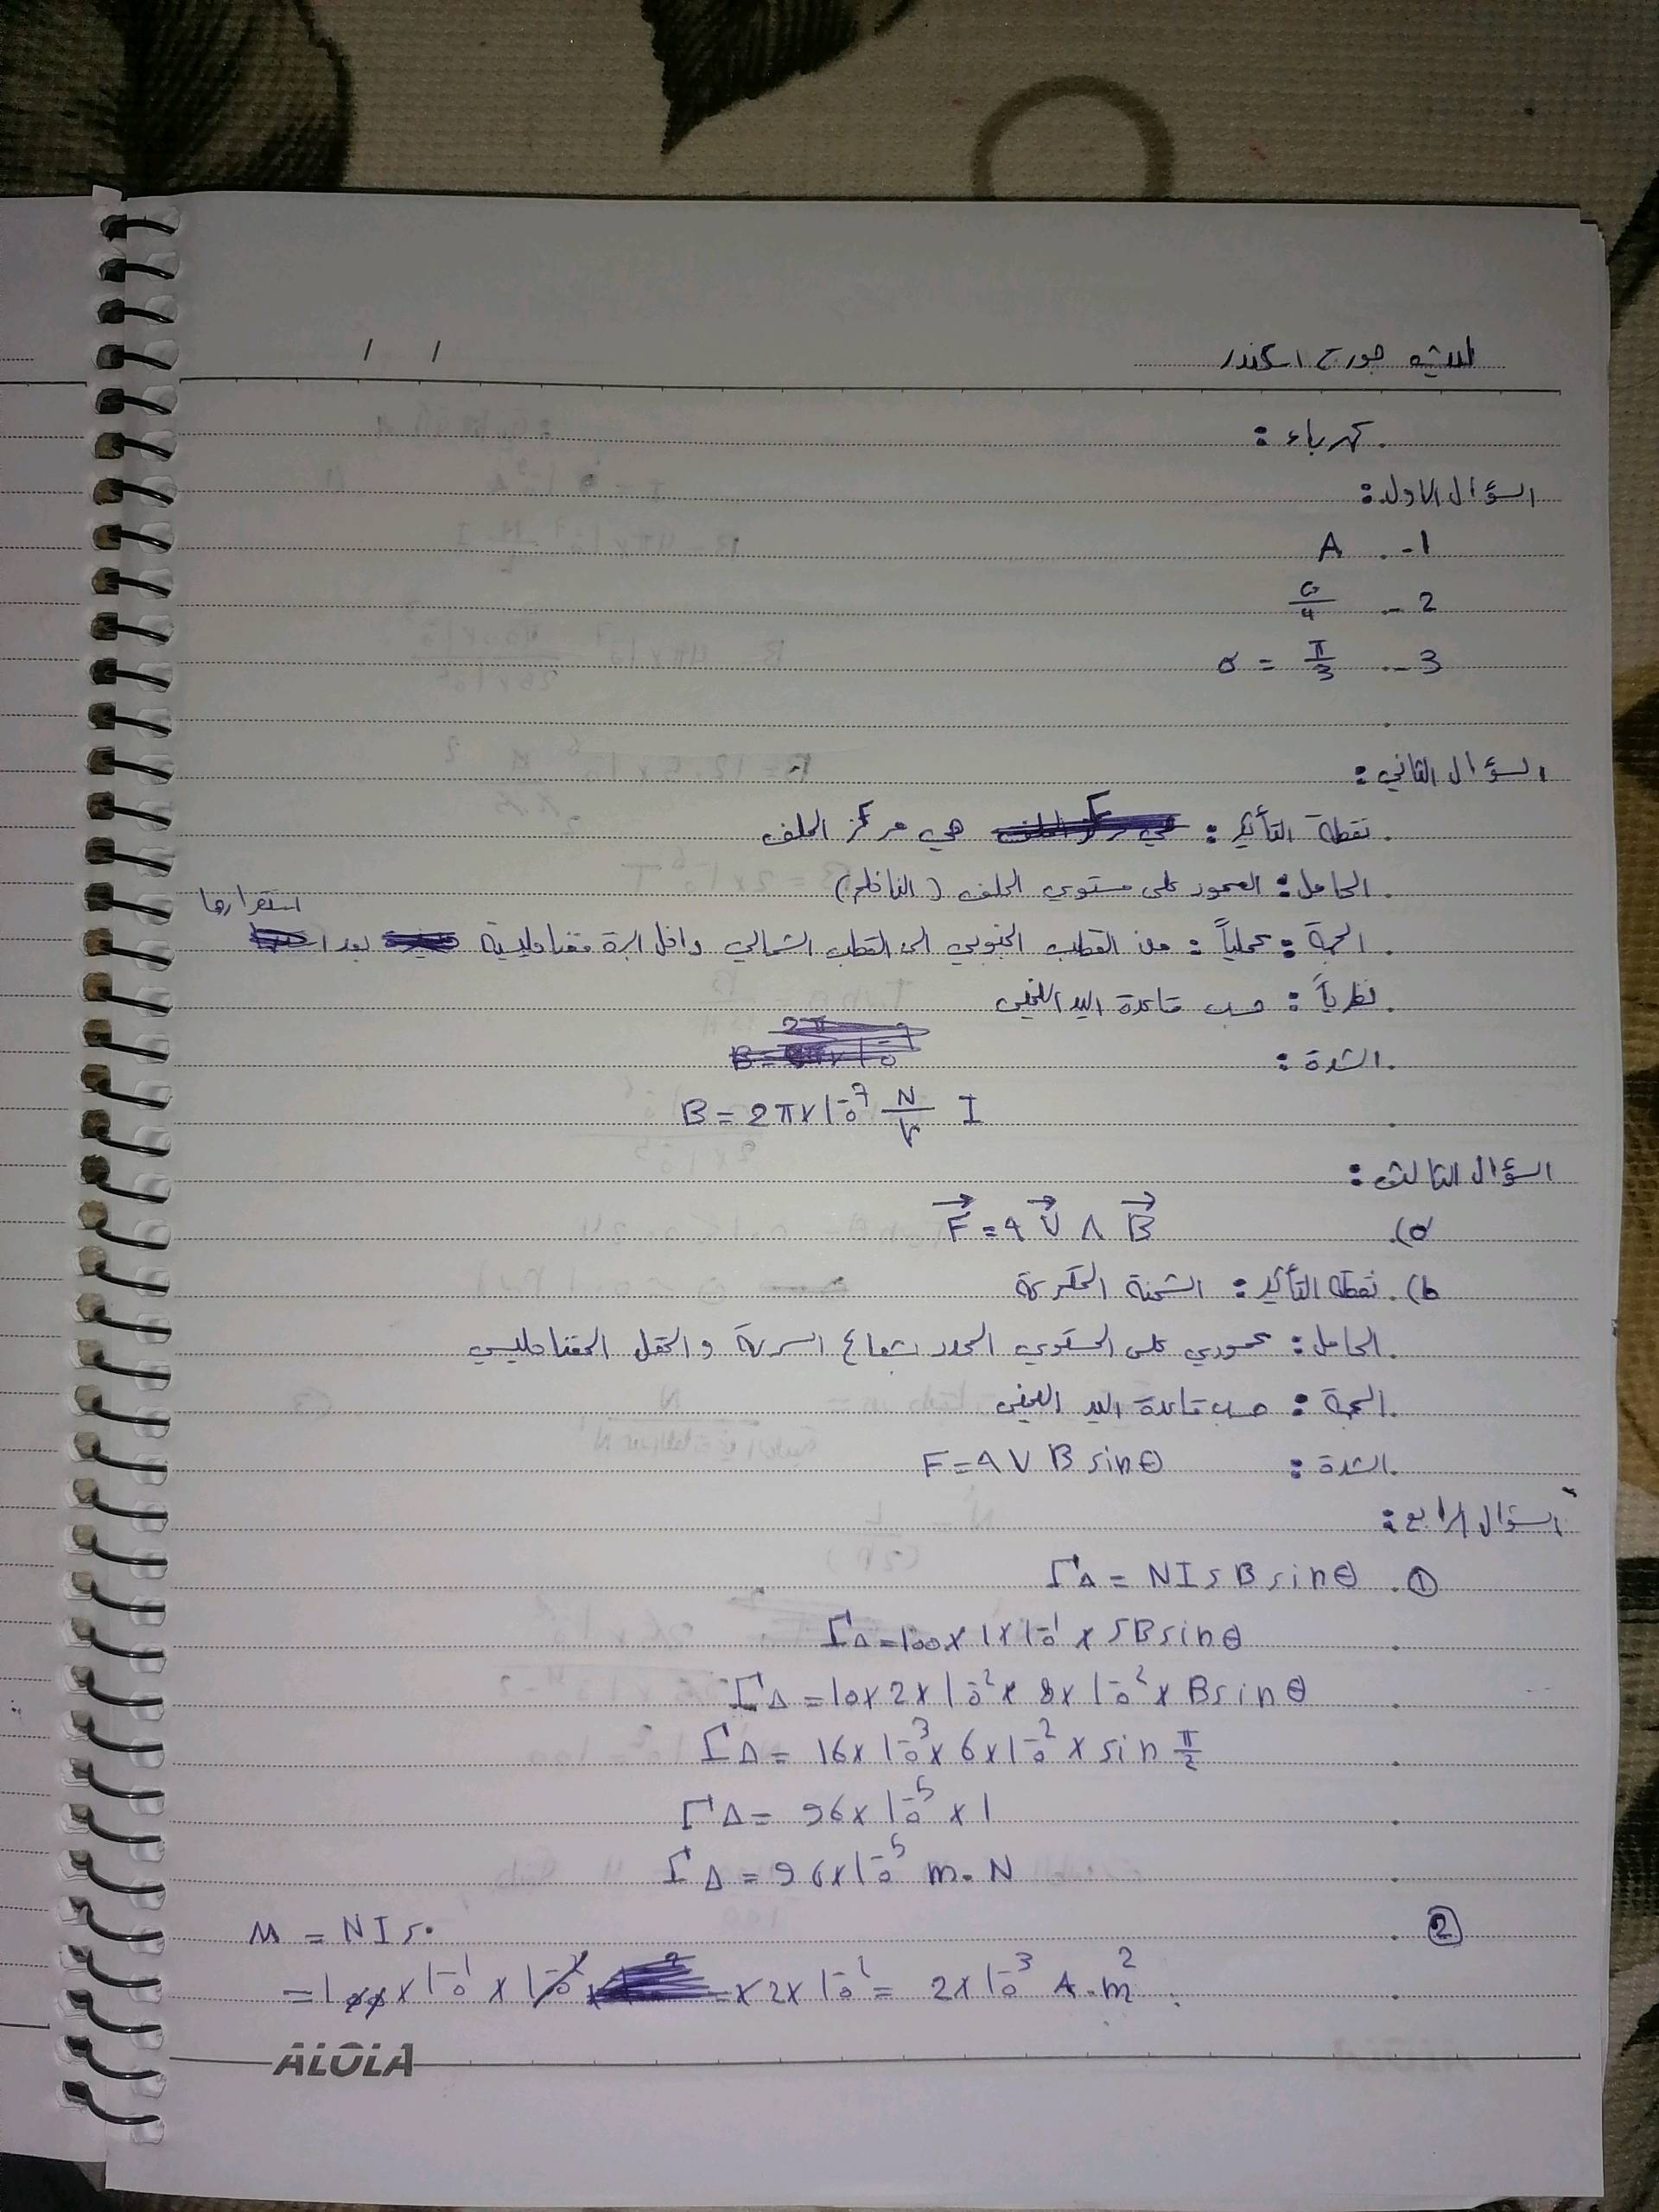 جورج اسكندر
/ /
كهرباء :
السؤال الاول :
1- A
2- G/4
3- α = π/3
السؤال الثاني :
نقطة التأثير : هي مركز الملف
الحامل : العمود على مستوي الملف (الناظم)
الجهة : عملياً : من القطب الجنوبي الى القطب الشمالي داخل ابرة مغناطيسية بعد استقرارها
نظرياً : حسب قاعدة اليد اليمنى
الشدة :
B = 2π×10⁻⁷ N/r I
السؤال الثالث :
a). F⃗ = q V⃗ Λ B⃗
b). نقطة التأثير : الشحنة المتحركة
الحامل : عمودي على المستوي المحدد بشعاع السرعة والحقل المغناطيسي
الجهة : حسب قاعدة اليد اليمنى
الشدة : F = q V B sinθ
السؤال الرابع :
① ΓΔ = NISB sinθ
ΓΔ = 100×1×10⁻¹ × SB sinθ
ΓΔ = 10×2×10⁻²×8×10⁻²×B sinθ
ΓΔ = 16×10⁻³×6×10⁻²×sin π/2
ΓΔ = 96×10⁻⁵×1
ΓΔ = 96×10⁻⁵ m.N
②
M = NIS.
=100×10⁻¹×10⁻² ×2×10⁻¹= 2×10⁻³ A.m²
ALOLA